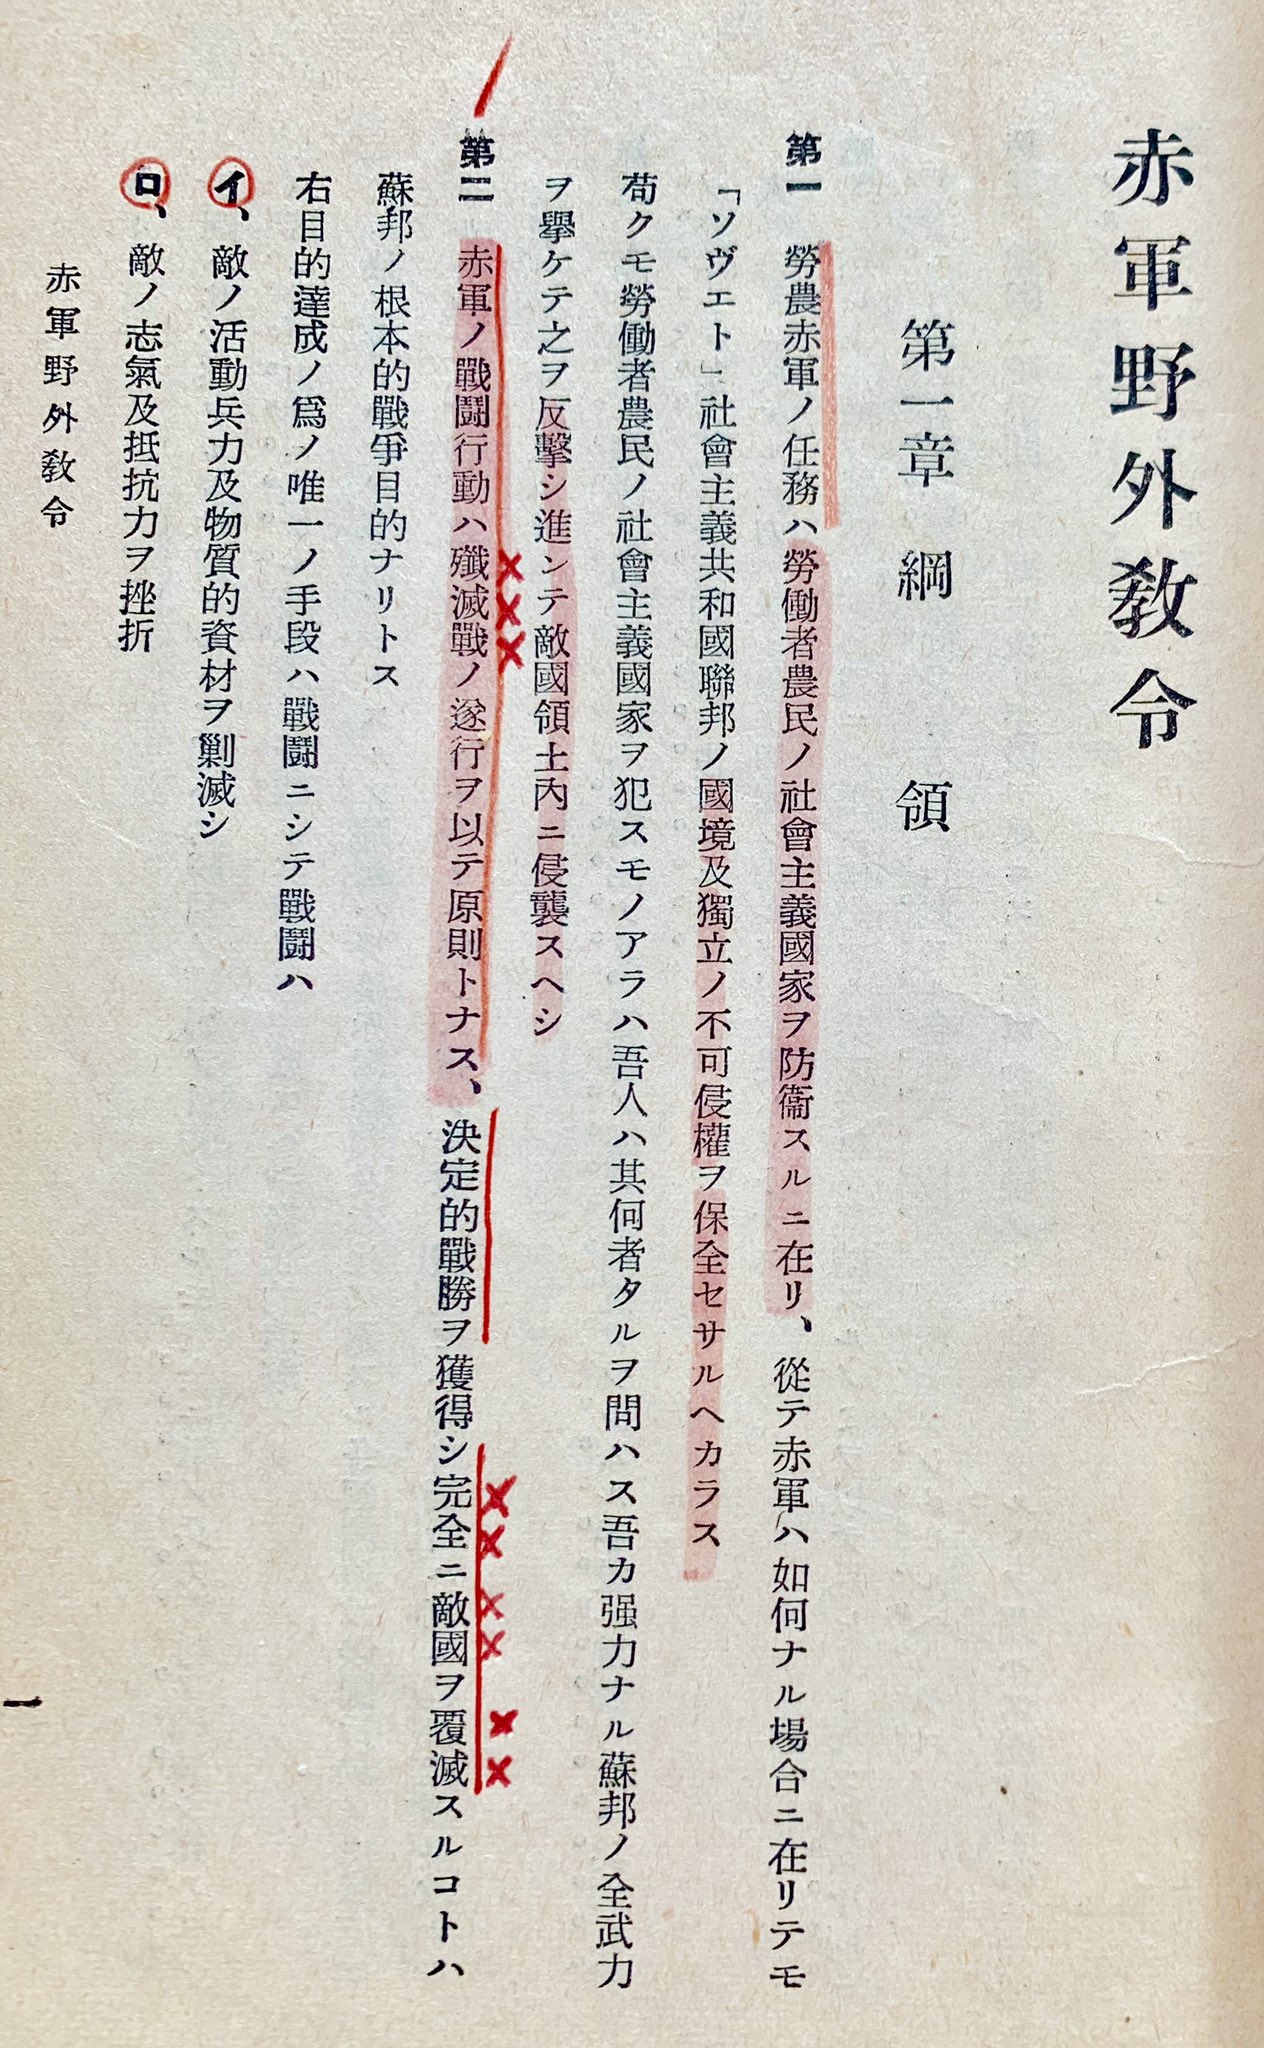 赤軍野外敎令
第一章　綱　領
第一　勞農赤軍ノ任務ハ勞働者農民ノ社會主義國家ヲ防衞スルニ在リ、從テ赤軍ハ如何ナル場合ニ在リテモ
「ソヴエト」社會主義共和國聯邦ノ國境及獨立ノ不可侵權ヲ保全セサルヘカラス
苟クモ勞働者農民ノ社會主義國家ヲ犯スモノアラハ吾人ハ其何者タルヲ問ハス吾カ强力ナル蘇邦ノ全武力
ヲ擧ケテ之ヲ反擊シ進ンテ敵國領土內ニ侵襲スヘシ
第二　赤軍ノ戰鬪行動ハ殲滅戰ノ遂行ヲ以テ原則トナス、決定的戰勝ヲ獲得シ完全ニ敵國ヲ覆滅スルコトハ
蘇邦ノ根本的戰爭目的ナリトス
右目的達成ノ爲ノ唯一ノ手段ハ戰鬪ニシテ戰鬪ハ
イ、敵ノ活動兵力及物質的資材ヲ剿滅シ
ロ、敵ノ志氣及抵抗力ヲ挫折
赤軍野外敎令
一